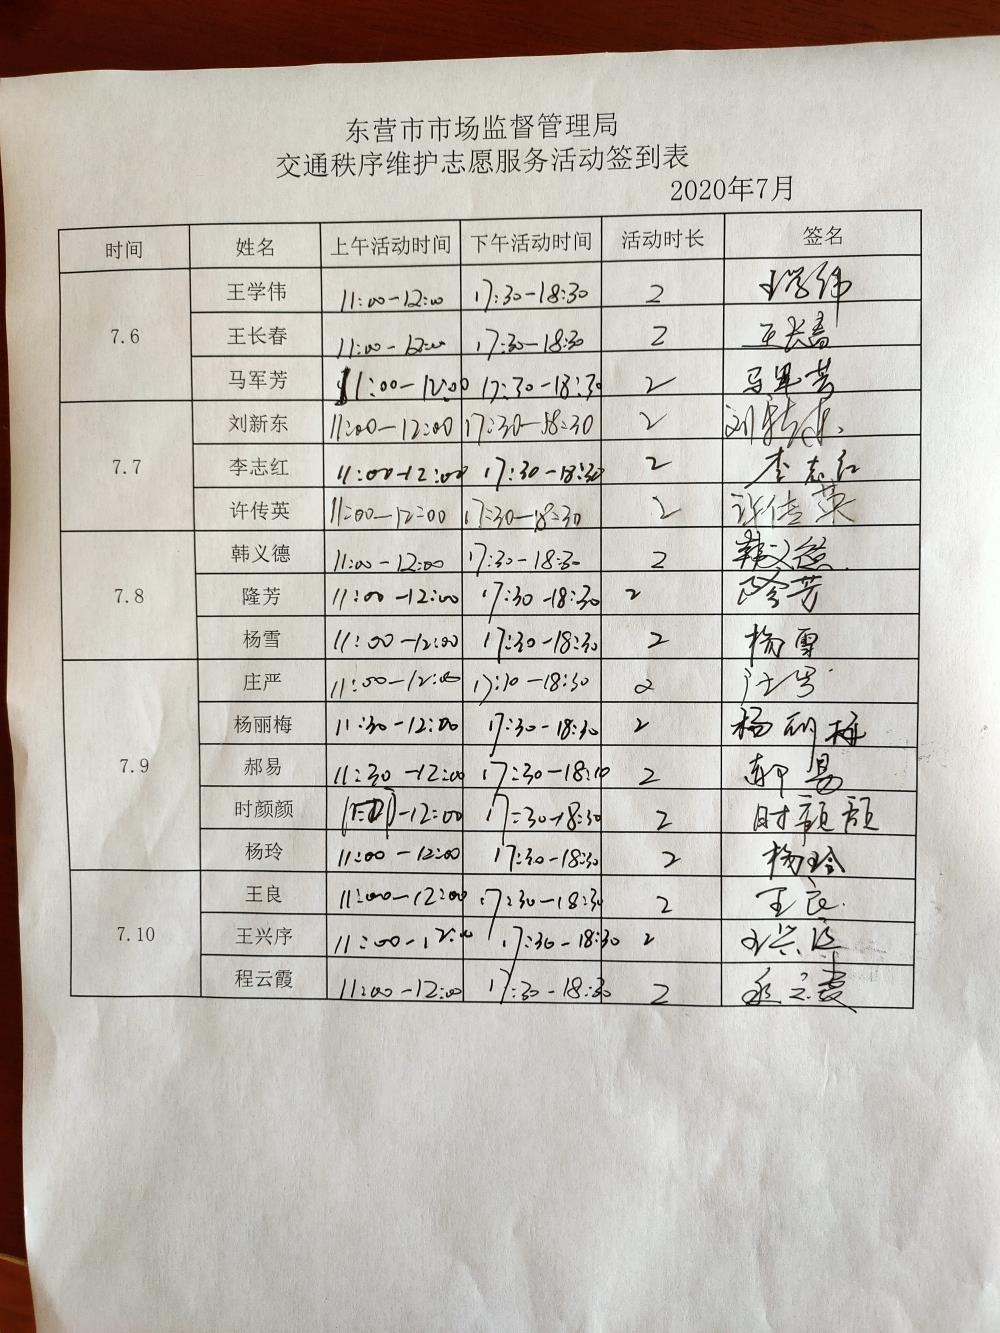 东营市市场监督管理局
交通秩序维护志愿服务活动签到表
2020年7月
时间 姓名 上午活动时间 下午活动时间 活动时长 签名
7.6 王学伟 11:00-12:00 17:30-18:30 2 王学伟
王长春 11:00-12:00 17:30-18:30 2 王长春
马军芳 11:00-12:00 17:30-18:30 2 马军芳
7.7 刘新东 11:00-12:00 17:30-18:30 2 刘新东
李志红 11:00-12:00 17:30-18:30 2 李志红
许传英 11:00-12:00 17:30-18:30 2 许传英
7.8 韩义德 11:00-12:00 17:30-18:30 2 韩义德
隆芳 11:00-12:00 17:30-18:30 2 隆芳
杨雪 11:00-12:00 17:30-18:30 2 杨雪
7.9 庄严 11:00-12:00 17:30-18:30 2 庄严
杨丽梅 11:30-12:00 17:30-18:30 2 杨丽梅
郝易 11:30-12:00 17:30-18:10 2 郝易
时颜颜 -12:00 17:30-18:30 2 时颜颜
杨玲 11:00-12:00 17:30-18:30 2 杨玲
7.10 王良 11:00-12:00 17:30-18:30 2 王良
王兴序 11:00-12:00 17:30-18:30 2 王兴序
程云霞 11:00-12:00 17:30-18:30 2 程云霞